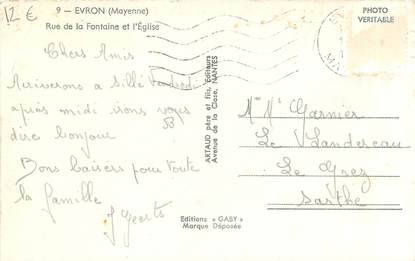 12 €
9 - EVRON (Mayenne)
Rue de la Fontaine et l'Église
Chers Amis
Arriverons a Sille Vendredi
après midi irons vous
dire bonjour
Bons baisers pour toute
la famille
J Geerts
ARTAUD père et fils, Éditeurs
Avenue de la Close, NANTES
Editions « GABY »
Marque Déposée
PHOTO
VERITABLE
Mme Mr Garnier
Le Landereau
Le Grez
Sarthe